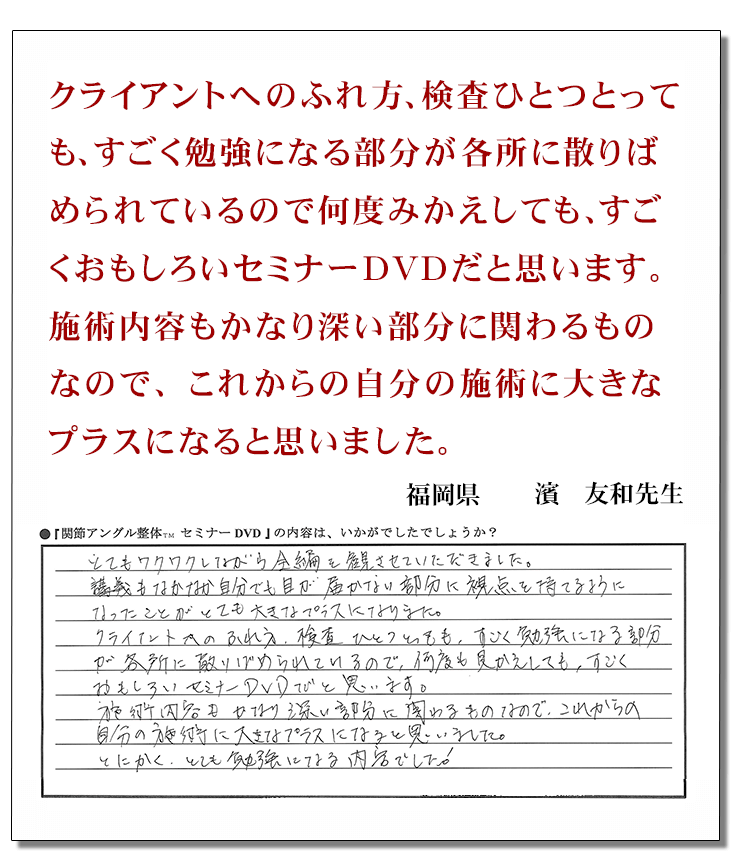 クライアントへのふれ方、検査ひとつとって
も、すごく勉強になる部分が各所に散りば
められているので何度みかえしても、すご
くおもしろいセミナーDVDだと思います。
施術内容もかなり深い部分に関わるもの
なので、これからの自分の施術に大きな
プラスになると思いました。
福岡県 濱 友和先生
●『関節アングル整体™ セミナーDVD』の内容は、いかがでしたでしょうか？
とてもワクワクしながら全編を観させていただきました。
講義もなかなか自分でも目が届かない部分に視点を持てるように
なったことがとても大きなプラスになりました。
クライアントへのふれ方、検査ひとつとっても、すごく勉強になる部分
が各所に散りばめられているので、何度も見かえしても、すごく
おもしろいセミナーDVDだと思います。
施術内容もかなり深い部分に関わるものなので、これからの
自分の施術に大きなプラスになると思いました。
とにかく、とても勉強になる内容でした!